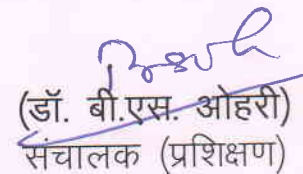 (डॉ. बी.एस. ओहरी)
संचालक (प्रशिक्षण)